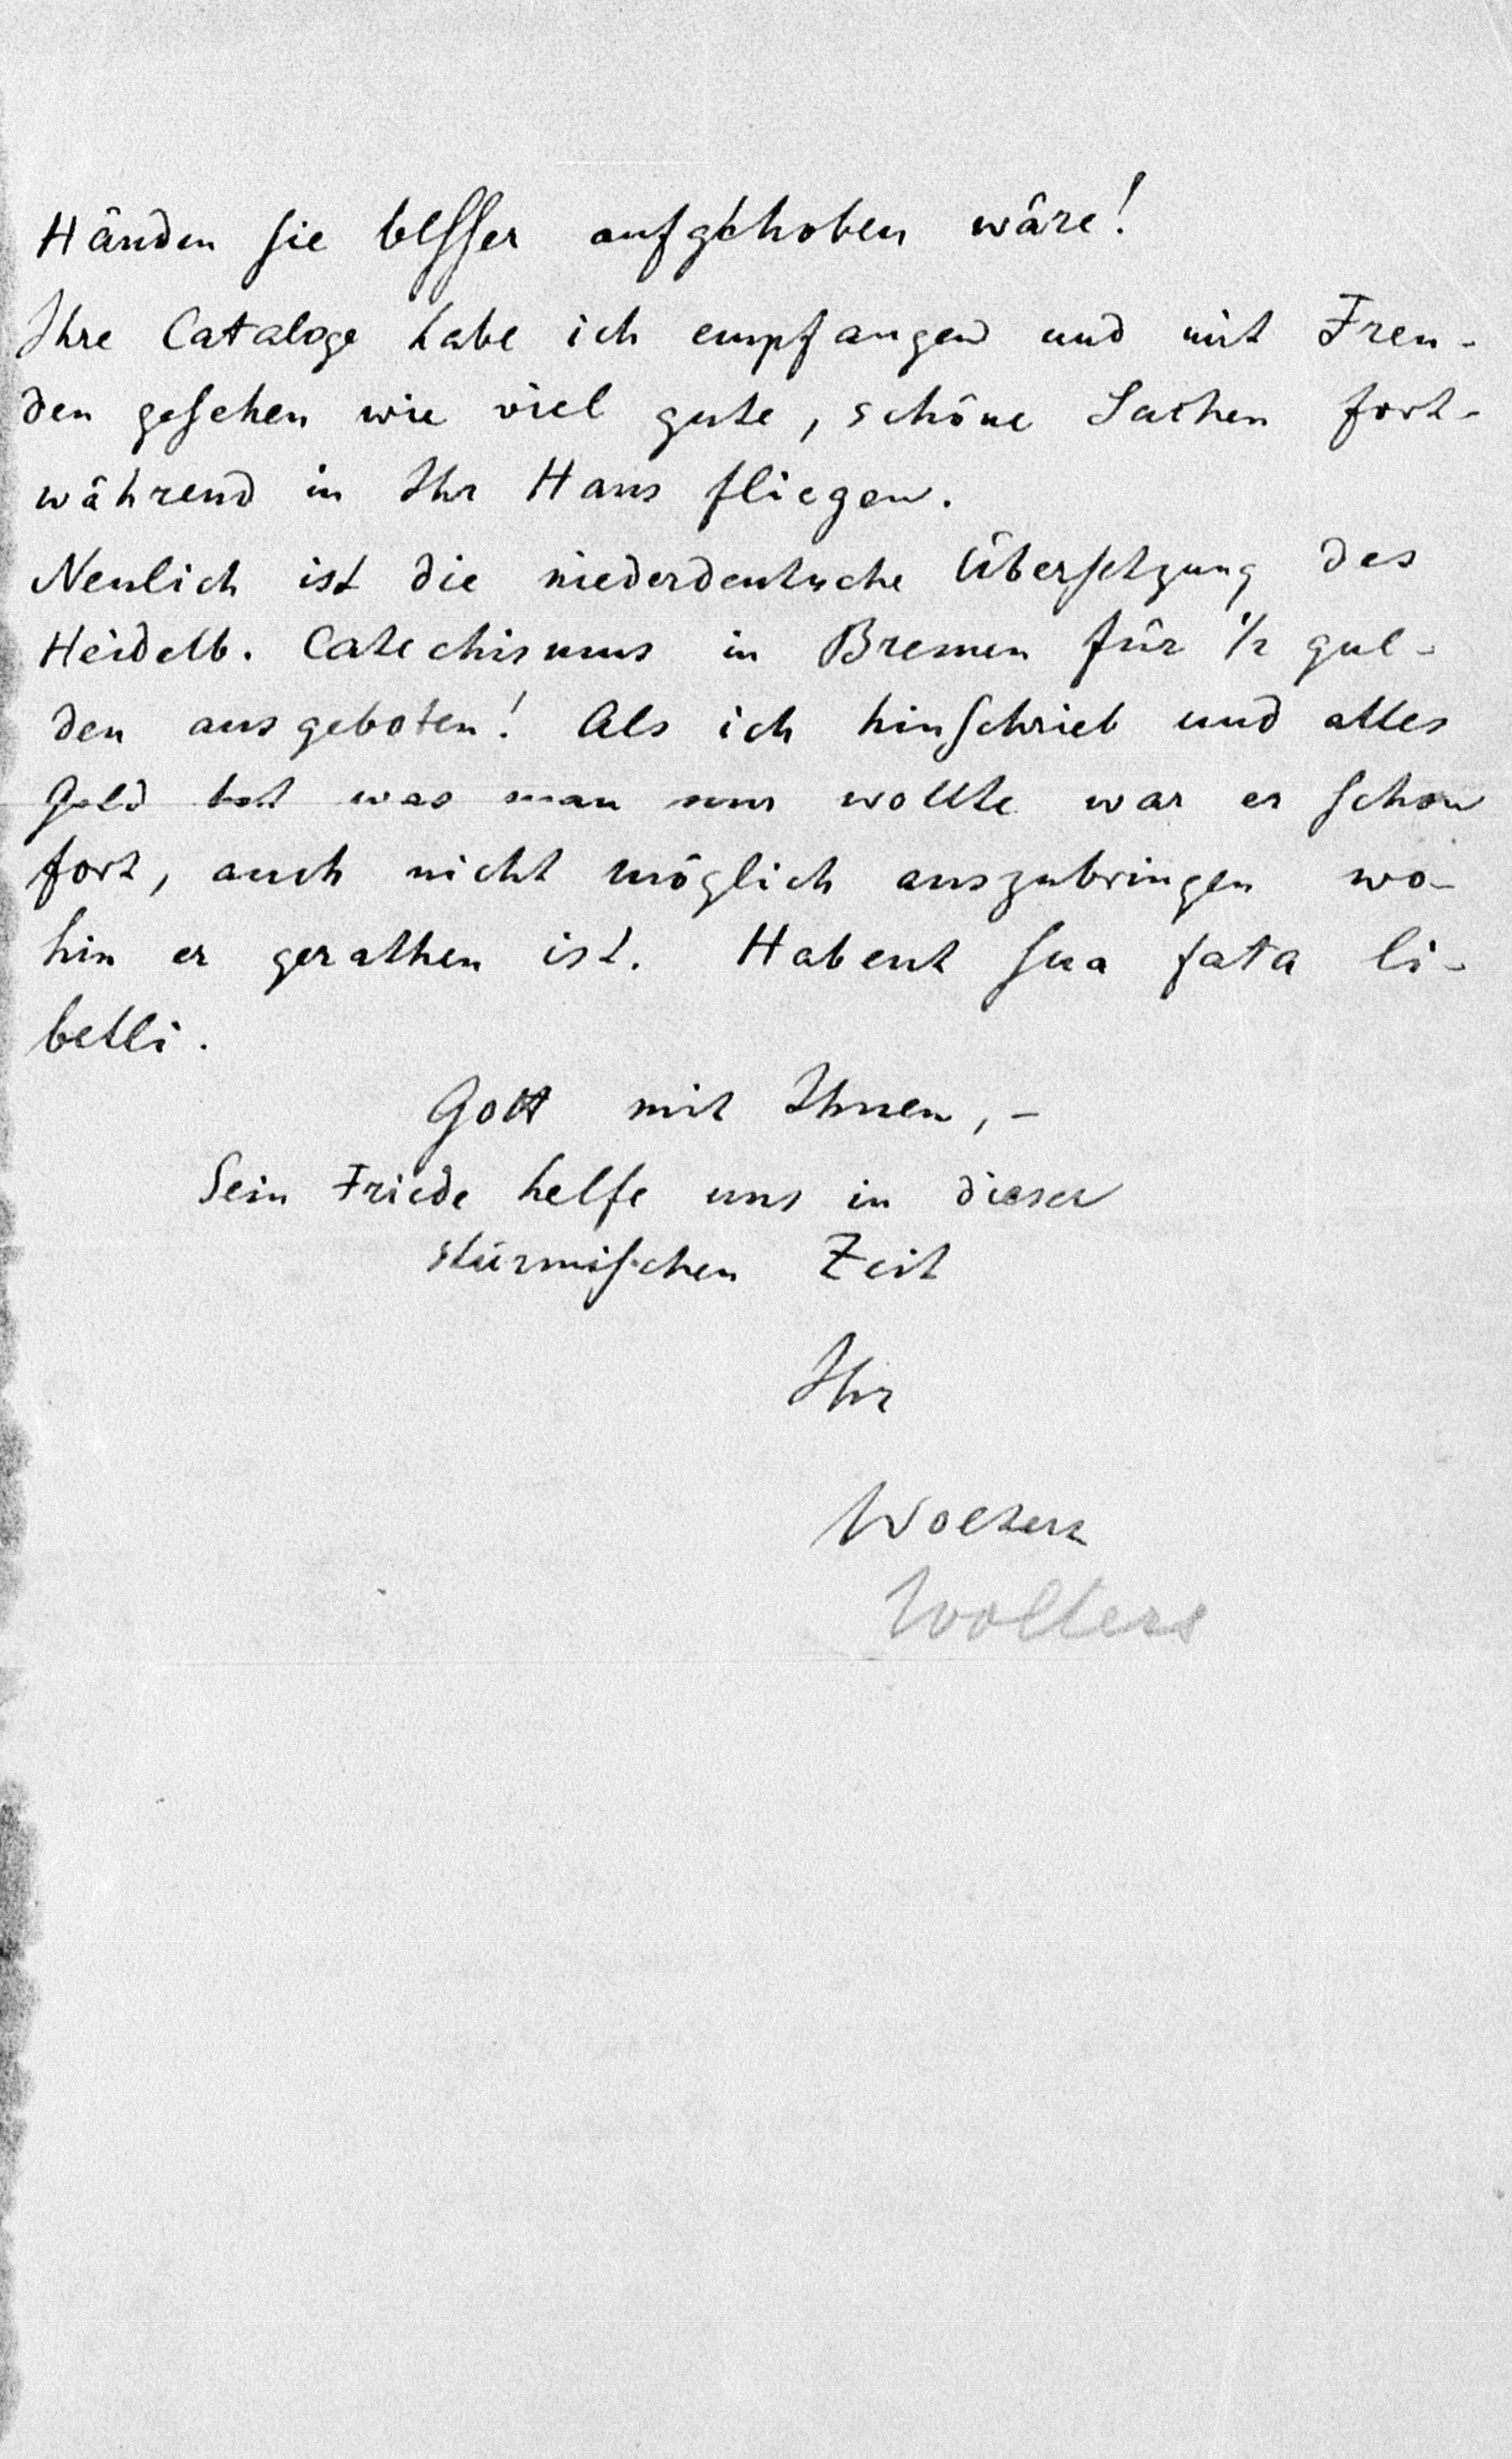 Händen sie besser aufgehoben wäre!
Ihre Cataloge habe ich empfangen und mit Freu-
den gesehen wie viel gute, schöne Sachen fort-
während in Ihr Haus fliegen.
Neulich ist die niederdeutsche Übersetzung des
Heidelb. Catechismus in Bremen für 1/2 gul-
den ausgeboten! Als ich hinschrieb und alles
Geld bot was man nur wollte war er schon
fort, auch nicht möglich auszubringen wo-
hin er gerathen ist. Habent sua fata li-
belli.
Gott mit Ihnen, -
Sein Friede helfe uns in dieser
stürmischen Zeit
Ihr
Wolters
Wolters